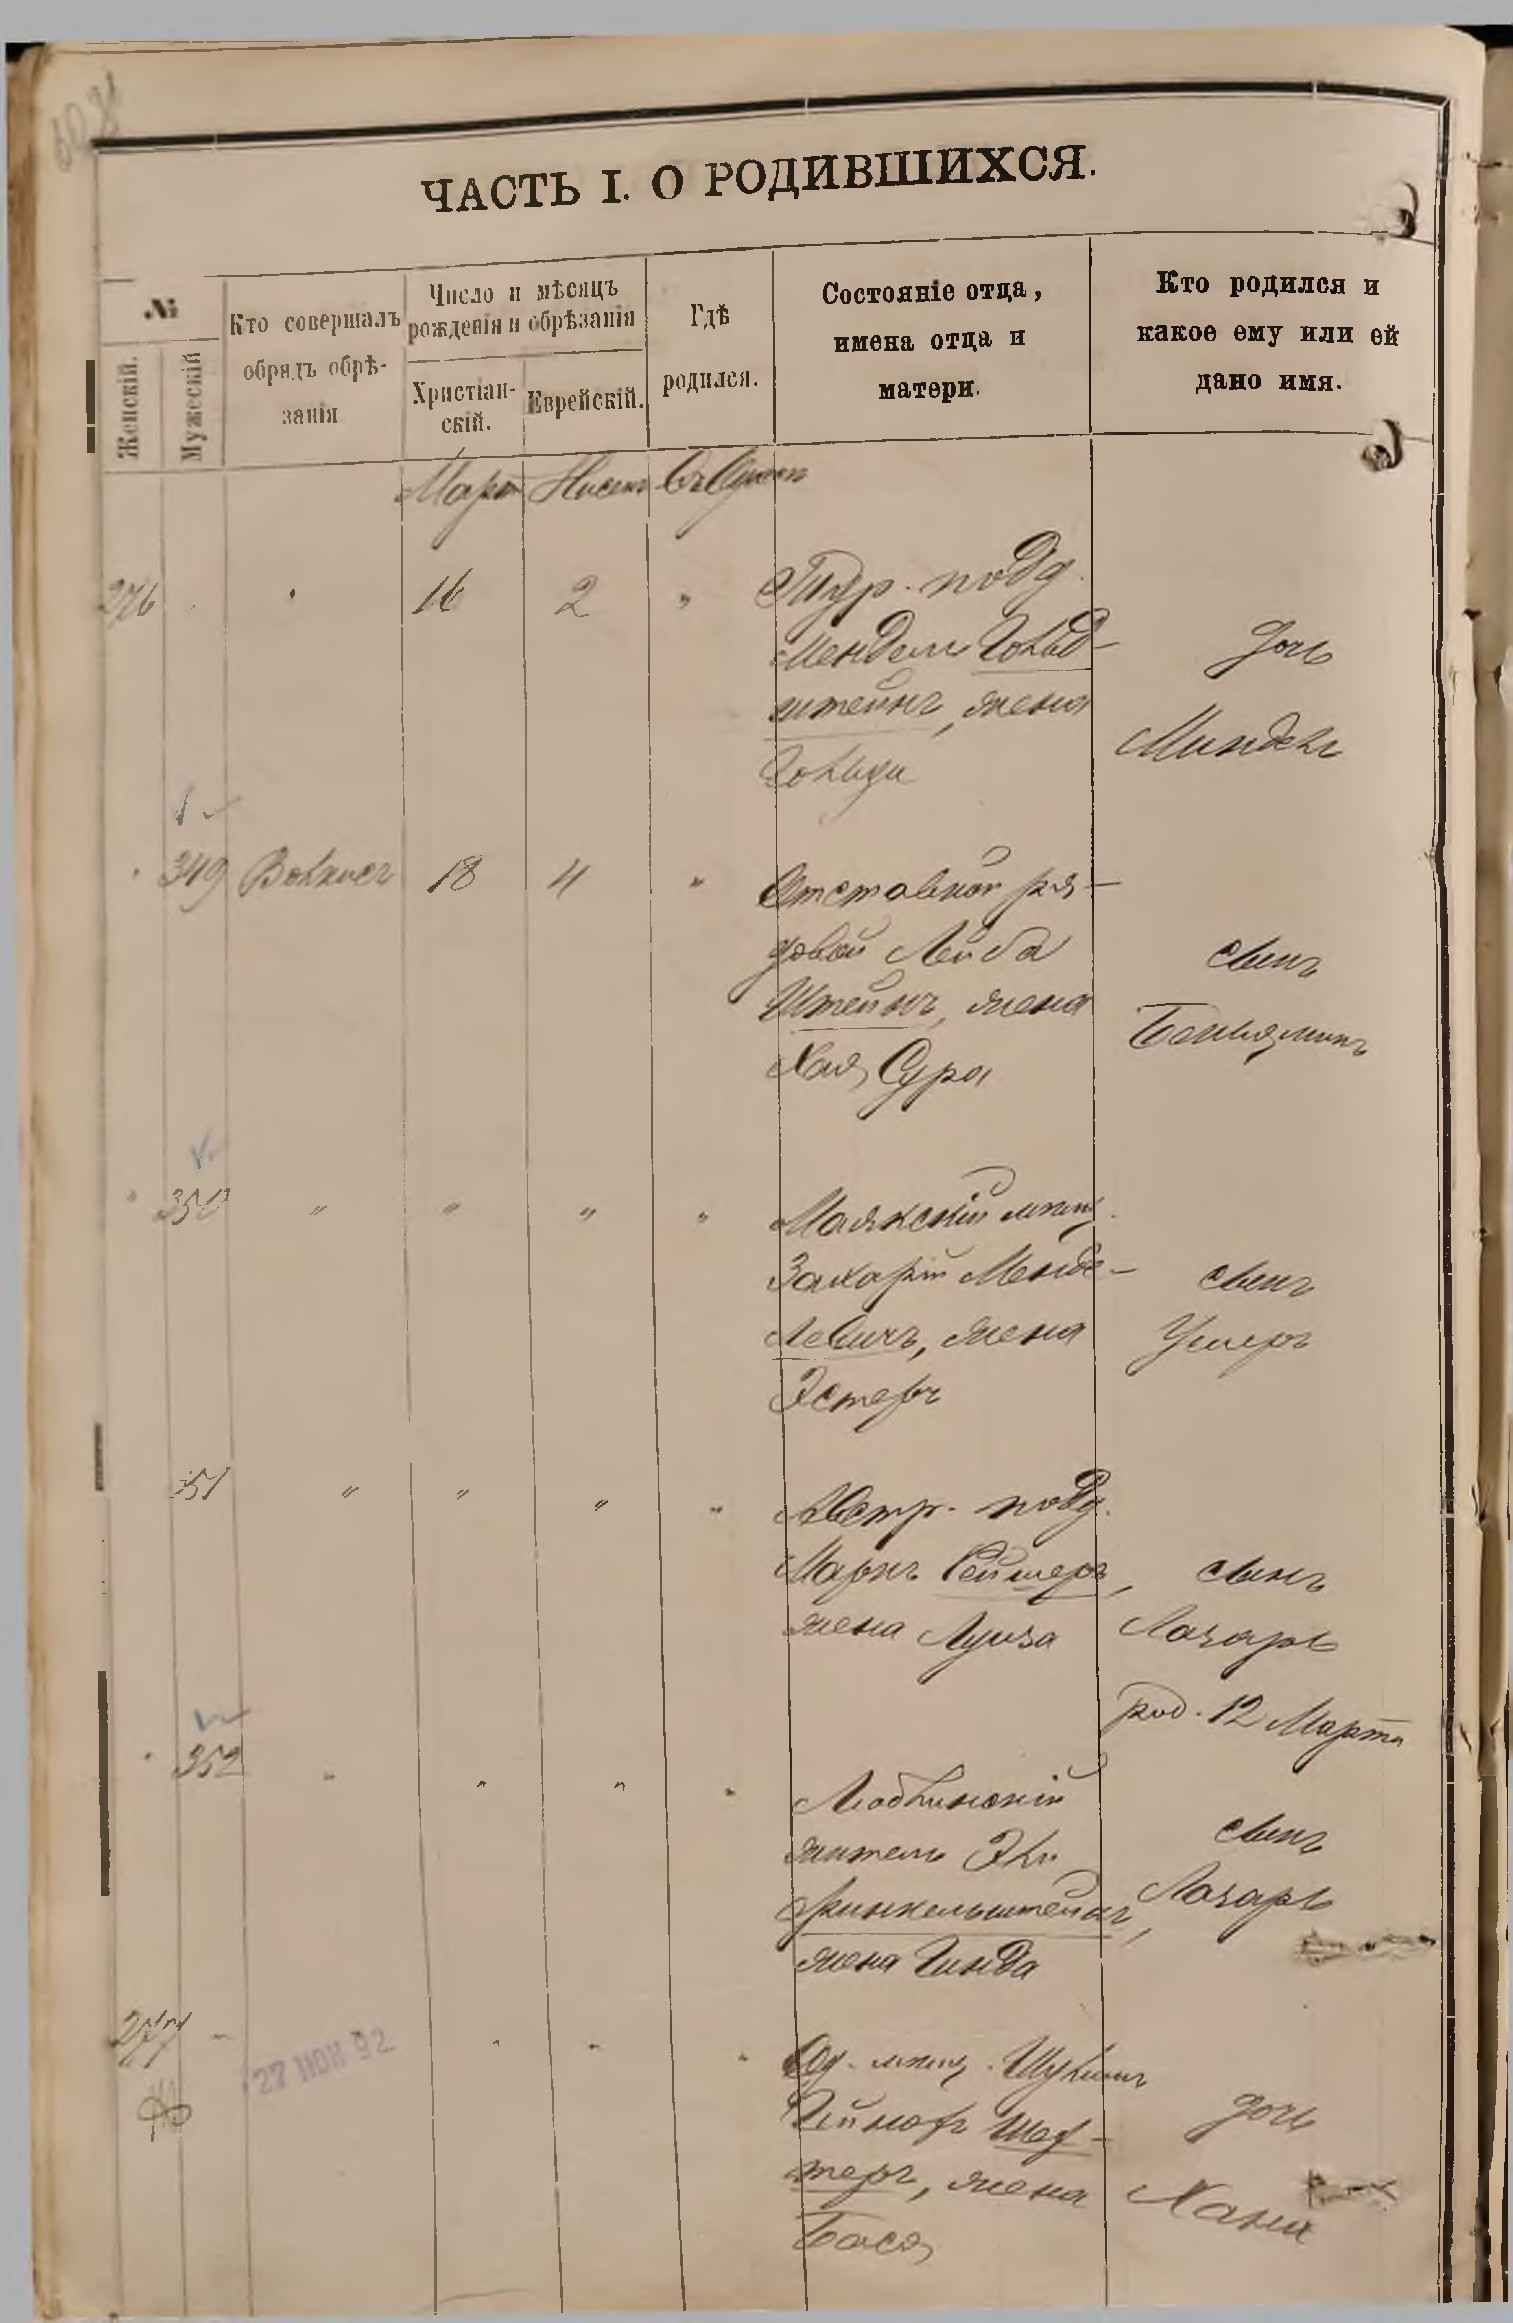 ЧАСТЬ I. О РОДИВШИХСЯ.
№
Женскій.
Мужескій
Кто совершалъ
обрядъ обрѣ-
занія
Число и мѣсяцъ
рожденія и обрѣзанія
Христіан-
скій.
Еврейскій.
Гдѣ
родился.
Состояніе отца,
имена отца и
матери.
Кто родился и
какое ему или ей
дано имя.
Мартъ Нисенъ
276 16 2 " Тур. подд.
Мендель Гольд-
штейнъ, жена
Гольди
дочь
Миндель
349 Волкисъ 18 4 " Отставной ря-
довой Лейба
Штейнъ, жена
Хая Сура
сынъ
Беньяминъ
350 " " " " Маякскій мѣщ.
Захарій Менде-
левичъ, жена
Эстеръ
сынъ
Ушеръ
351 " " " " Австр. подд.
Маркъ Рейшеръ,
жена Луиза
сынъ
Лазарь
род. 12 Марта
352 " " " " Люблинскій
житель Эли
Финкельштейнъ,
жена Гинда
сынъ
Лазарь
277 " " " Од. мѣщ. Шулимъ
Шеф-
теръ, жена
Бася
дочь
Хана
27 НОЯ 92